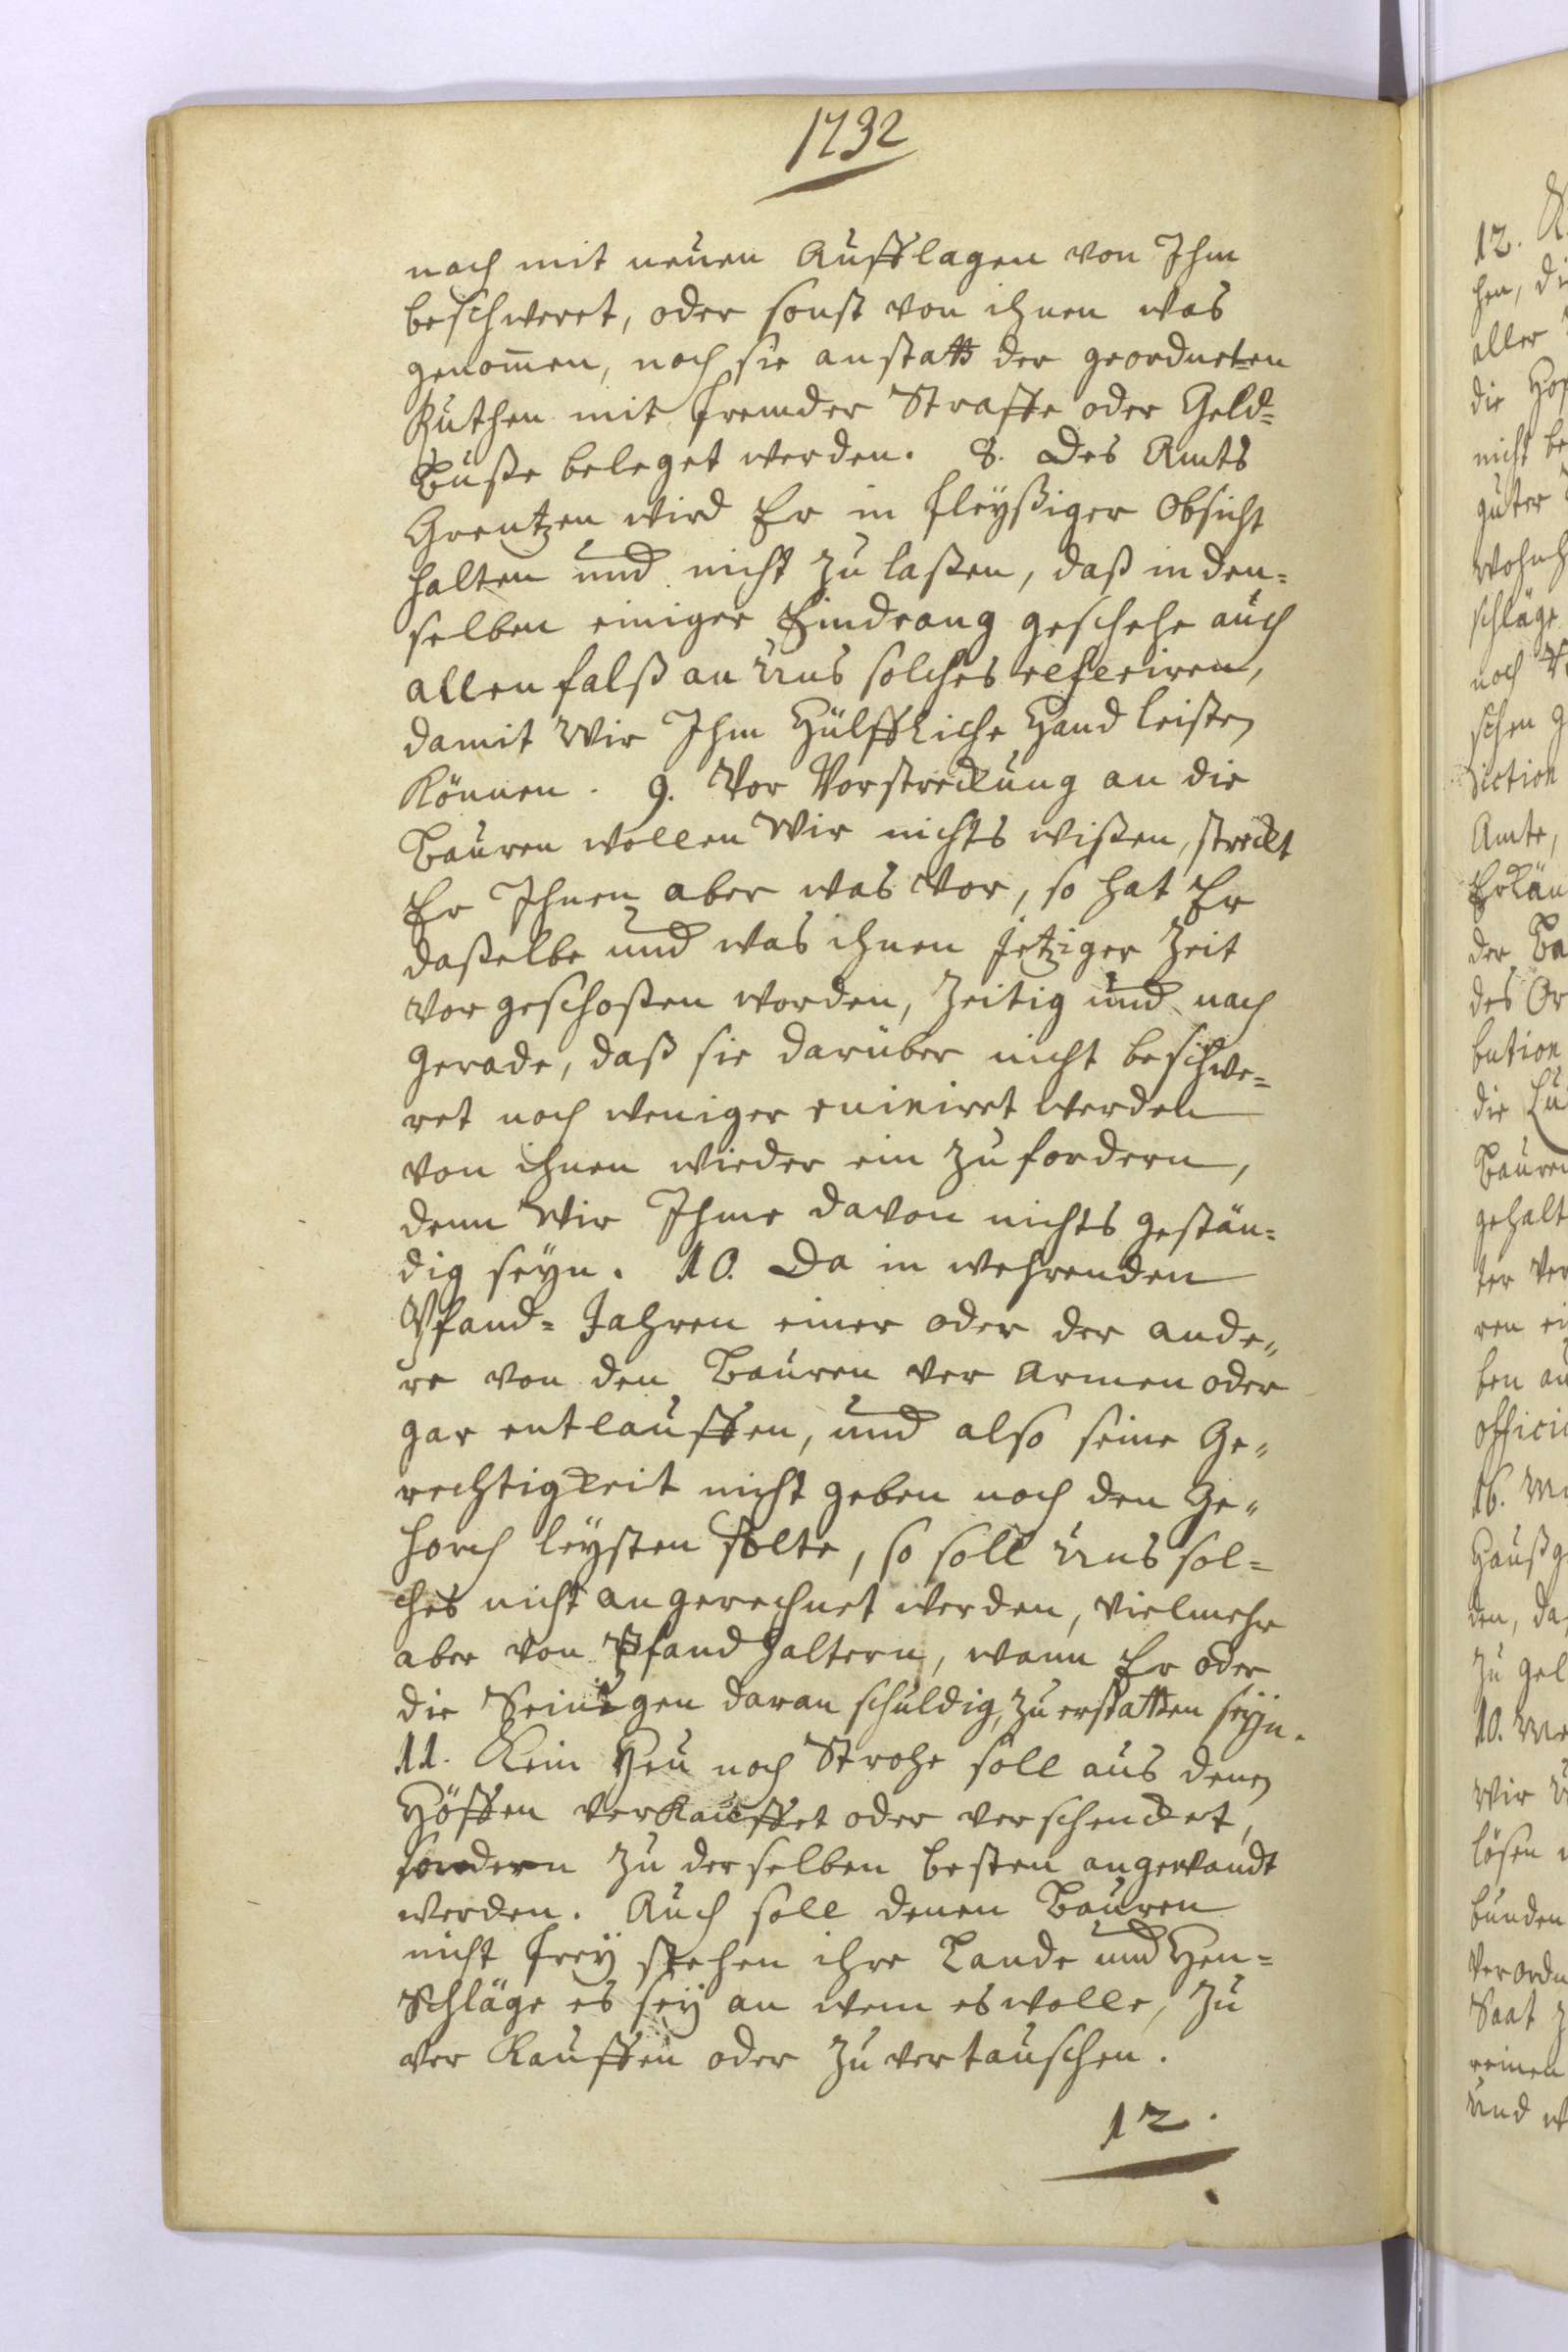 1732
noch mit neuen Aufflagen von Ihm
beschweret, oder sonst von ihnen was
genom̅en, noch sie anstatt der geordneten
Ruthen mit fremder Straffe oder Geld=
Buße beleget werden. 8. Des Amts
Grentzen wird Er in fleyßiger Obsicht
halten und nicht zu laßen, daß in den=
selben einiger Eindrang geschehe auch
allen falß an Uns solches referiren,
damit Wir Ihm Hülffliche Hand leisten
Können. 9. Vor Vorstreckung an die
Bauren wollen Wir nichts wißen, streckt
Er Ihnen aber was Vor, so hat Er
daßelbe und was ihnen jetziger Zeit
vor geschoßen worden, Zeitig und nach
gerade, daß sie darüber nicht beschwe=
ret noch weniger ruiniret werden
von ihnen wieder ein zu fordern,
denn Wir Ihme davon nichts gestän=
dig seyn. 10. Da in wehrenden
Pfand=Jahren einer oder der ande„
re von den Bauren ver armen oder
gar entlauffen, und also seine Ge„
rechtigkeit nicht geben noch den Ge„
horch leysten solte, so soll Uns sol=
ches nicht angerechnet werden, vielmehr
aber von Pfandhaltern, wann Er oder
die Seinigen daran schuldig, zu erstatten seyn.
11. Kein Heu noch Strohe soll aus denen
Höffen verkauffet oder verschencket,
sondern zu derselben besten angewandt
werden. Auch soll denen Bauren
nicht frey stehen ihre Lande und Heu=
Schläge es sey an wem es wolle, zu
ver Kauffen oder zu vertauschen.
12.
12.
aller
die
nicht be
guter
schläge
noch
schen
diction
Amte,
der
bution
die
Bauren
gehalt
ter
ren
ben
offici
16.
Haußg
zu
10.
Wir
lösen
bunden
Verordn
Saat
reinen
Und